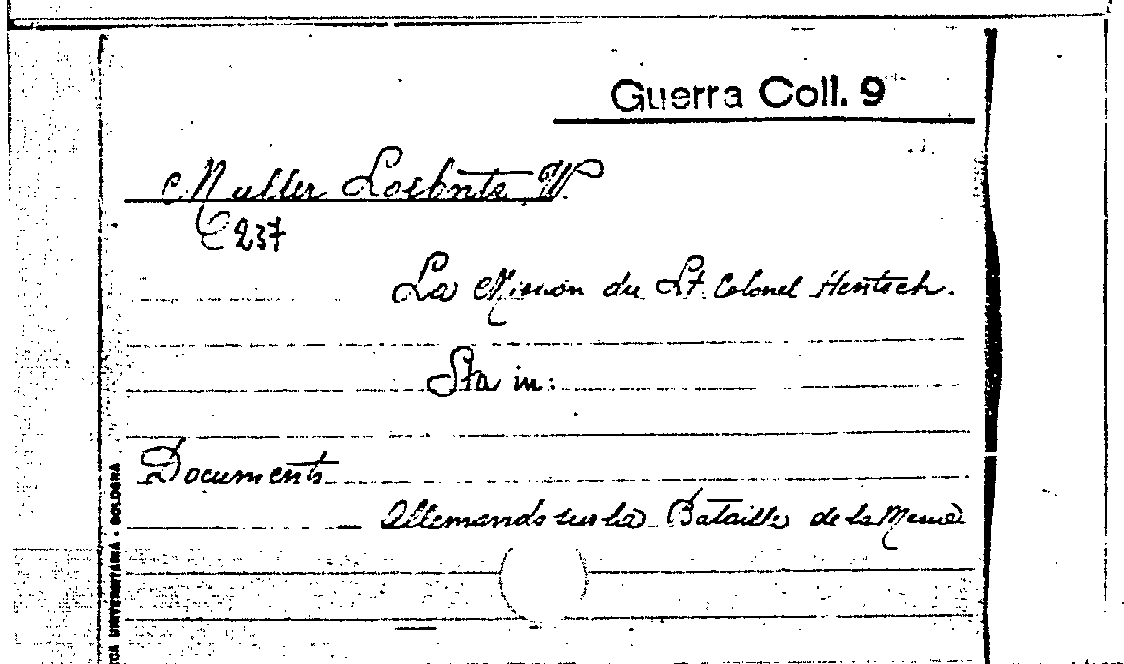 Guerra Coll. 9
Muller Loebnts W.
C 237
La Mission du Lt. Colonel Hentsch.
Sta in:
Documents
Allemands sur la Bataille de la Marne
CA UNIVERSITARIA • BOLOGNA